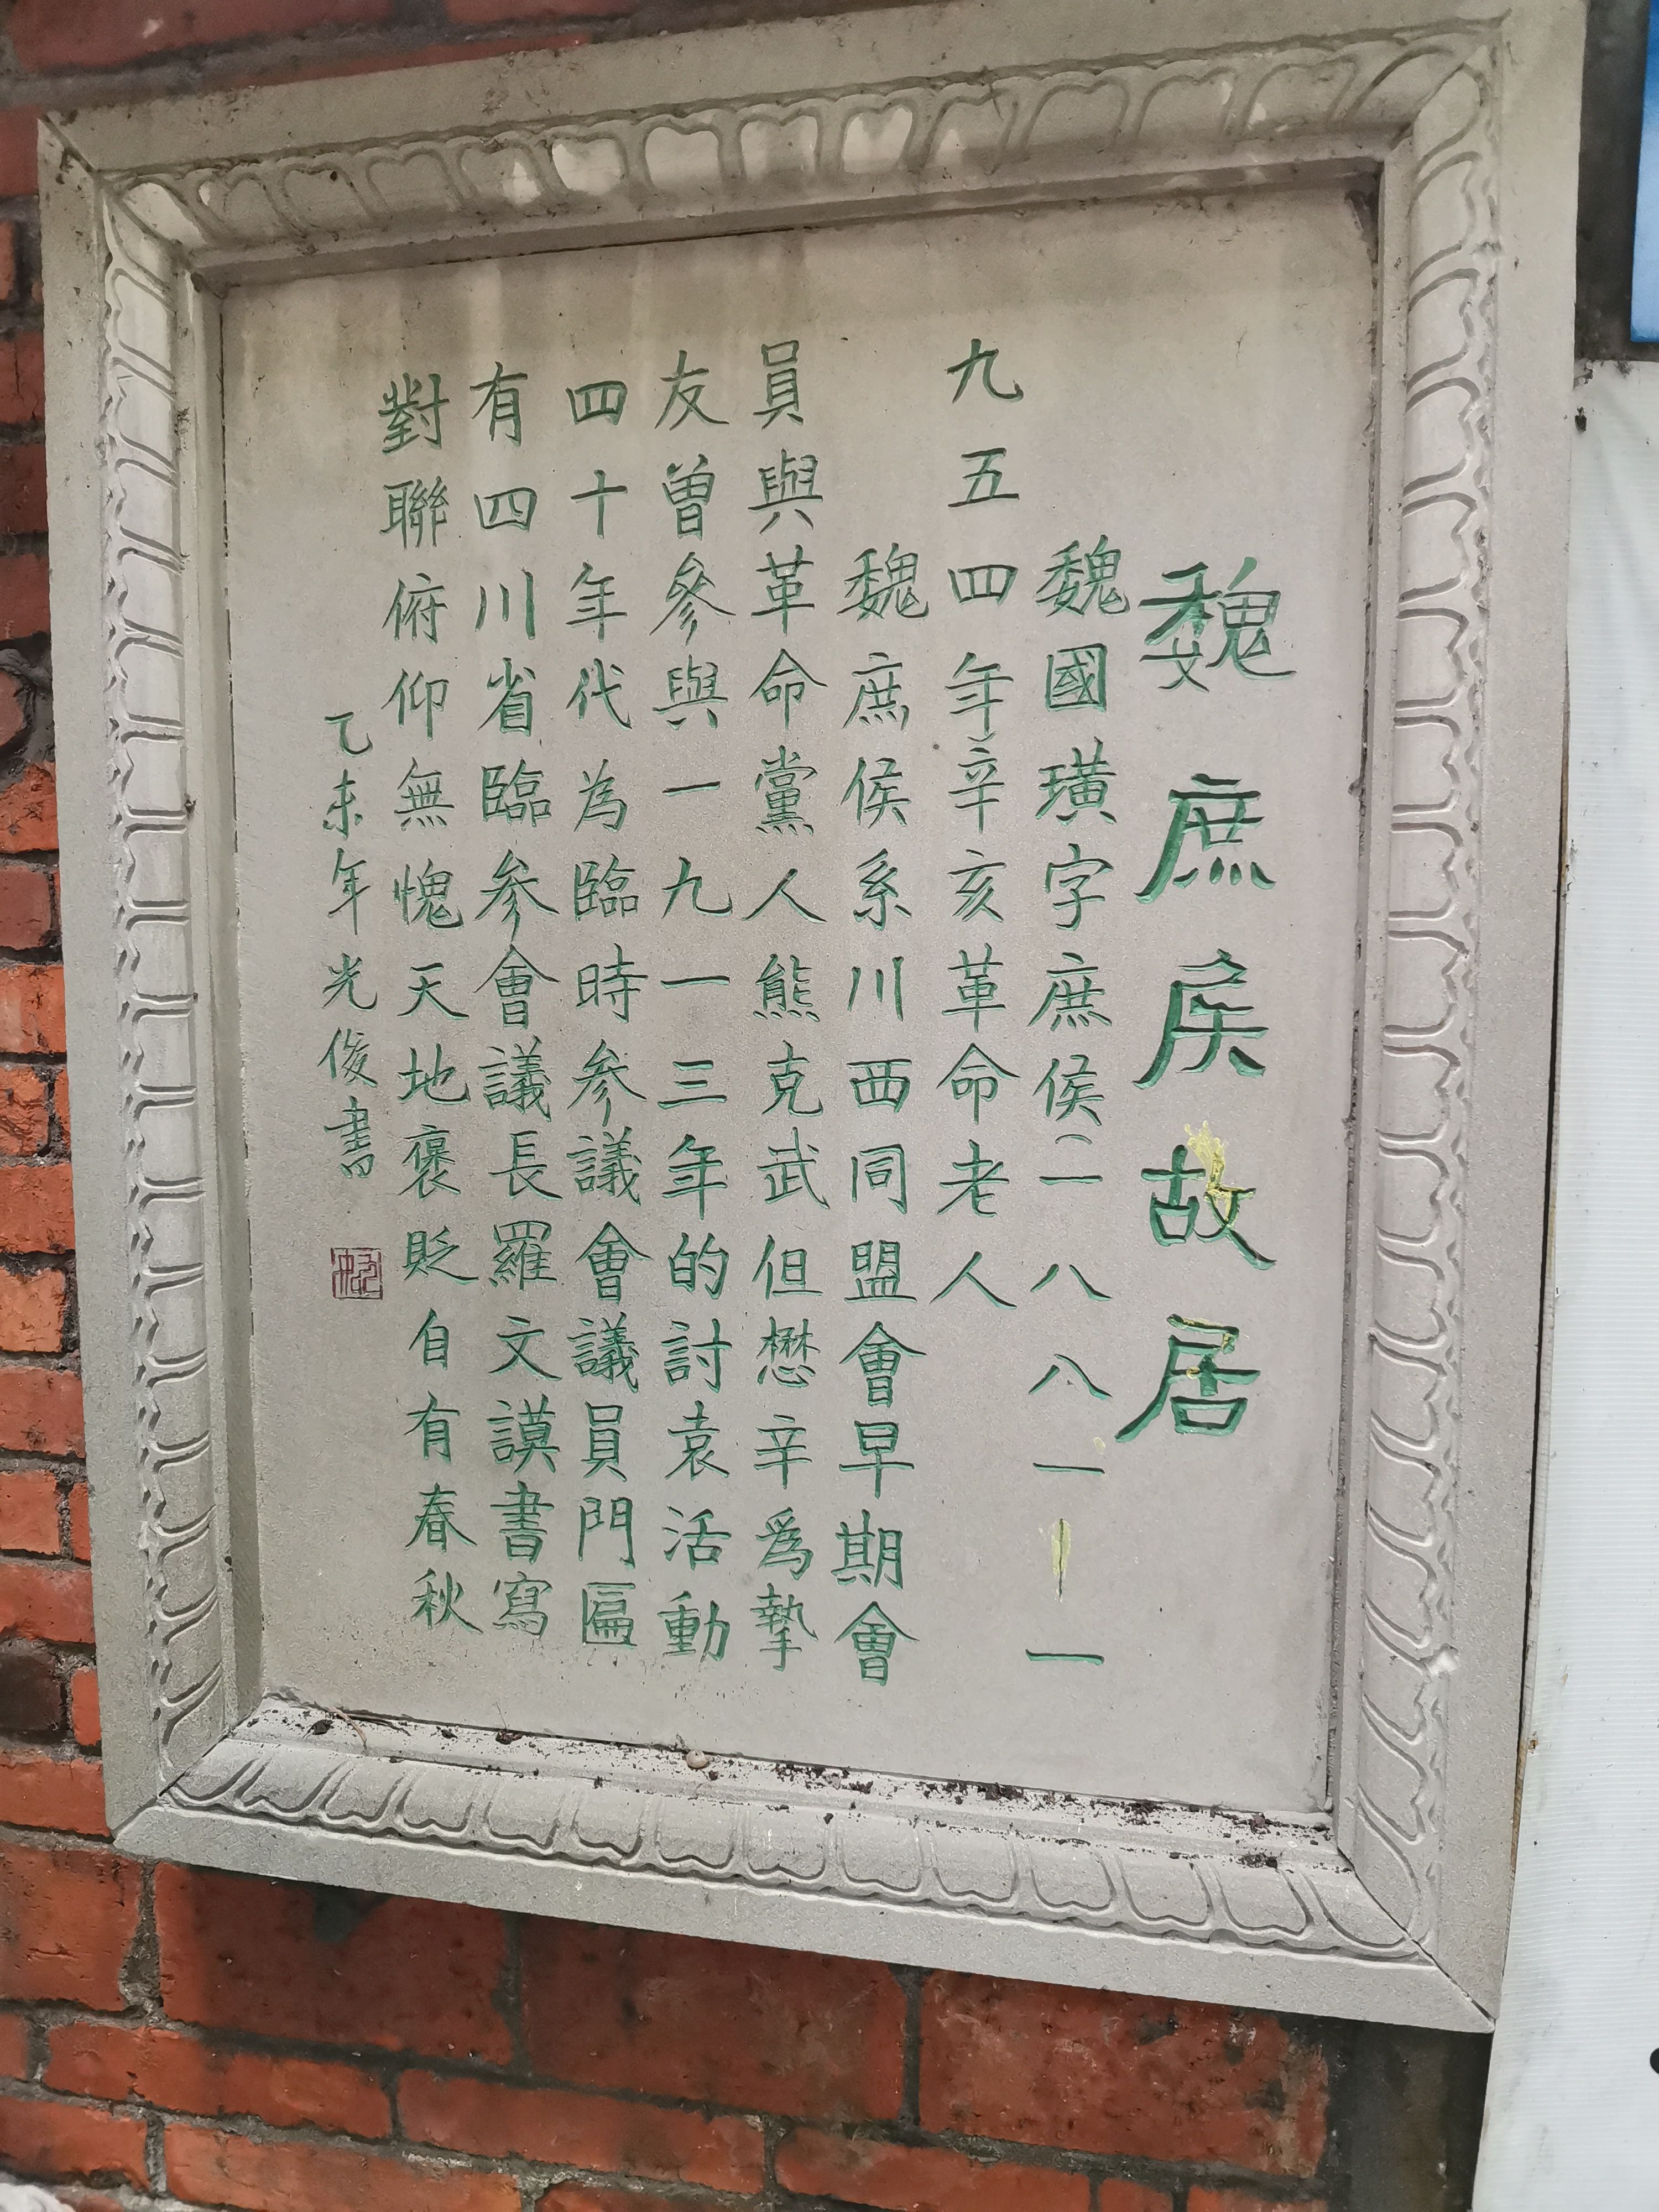 魏庶矦故居
魏國璜字庶侯(一八八一—一
九五四年)辛亥革命老人
魏庶侯系川西同盟會早期會
員與革命黨人熊克武但懋辛爲摯
友曾參與一九一三年的討袁活動
四十年代為臨時参議會議員門匾
有四川省臨参會議長羅文謨書寫
對聯俯仰無愧天地褒貶自有春秋
乙未年光俊書